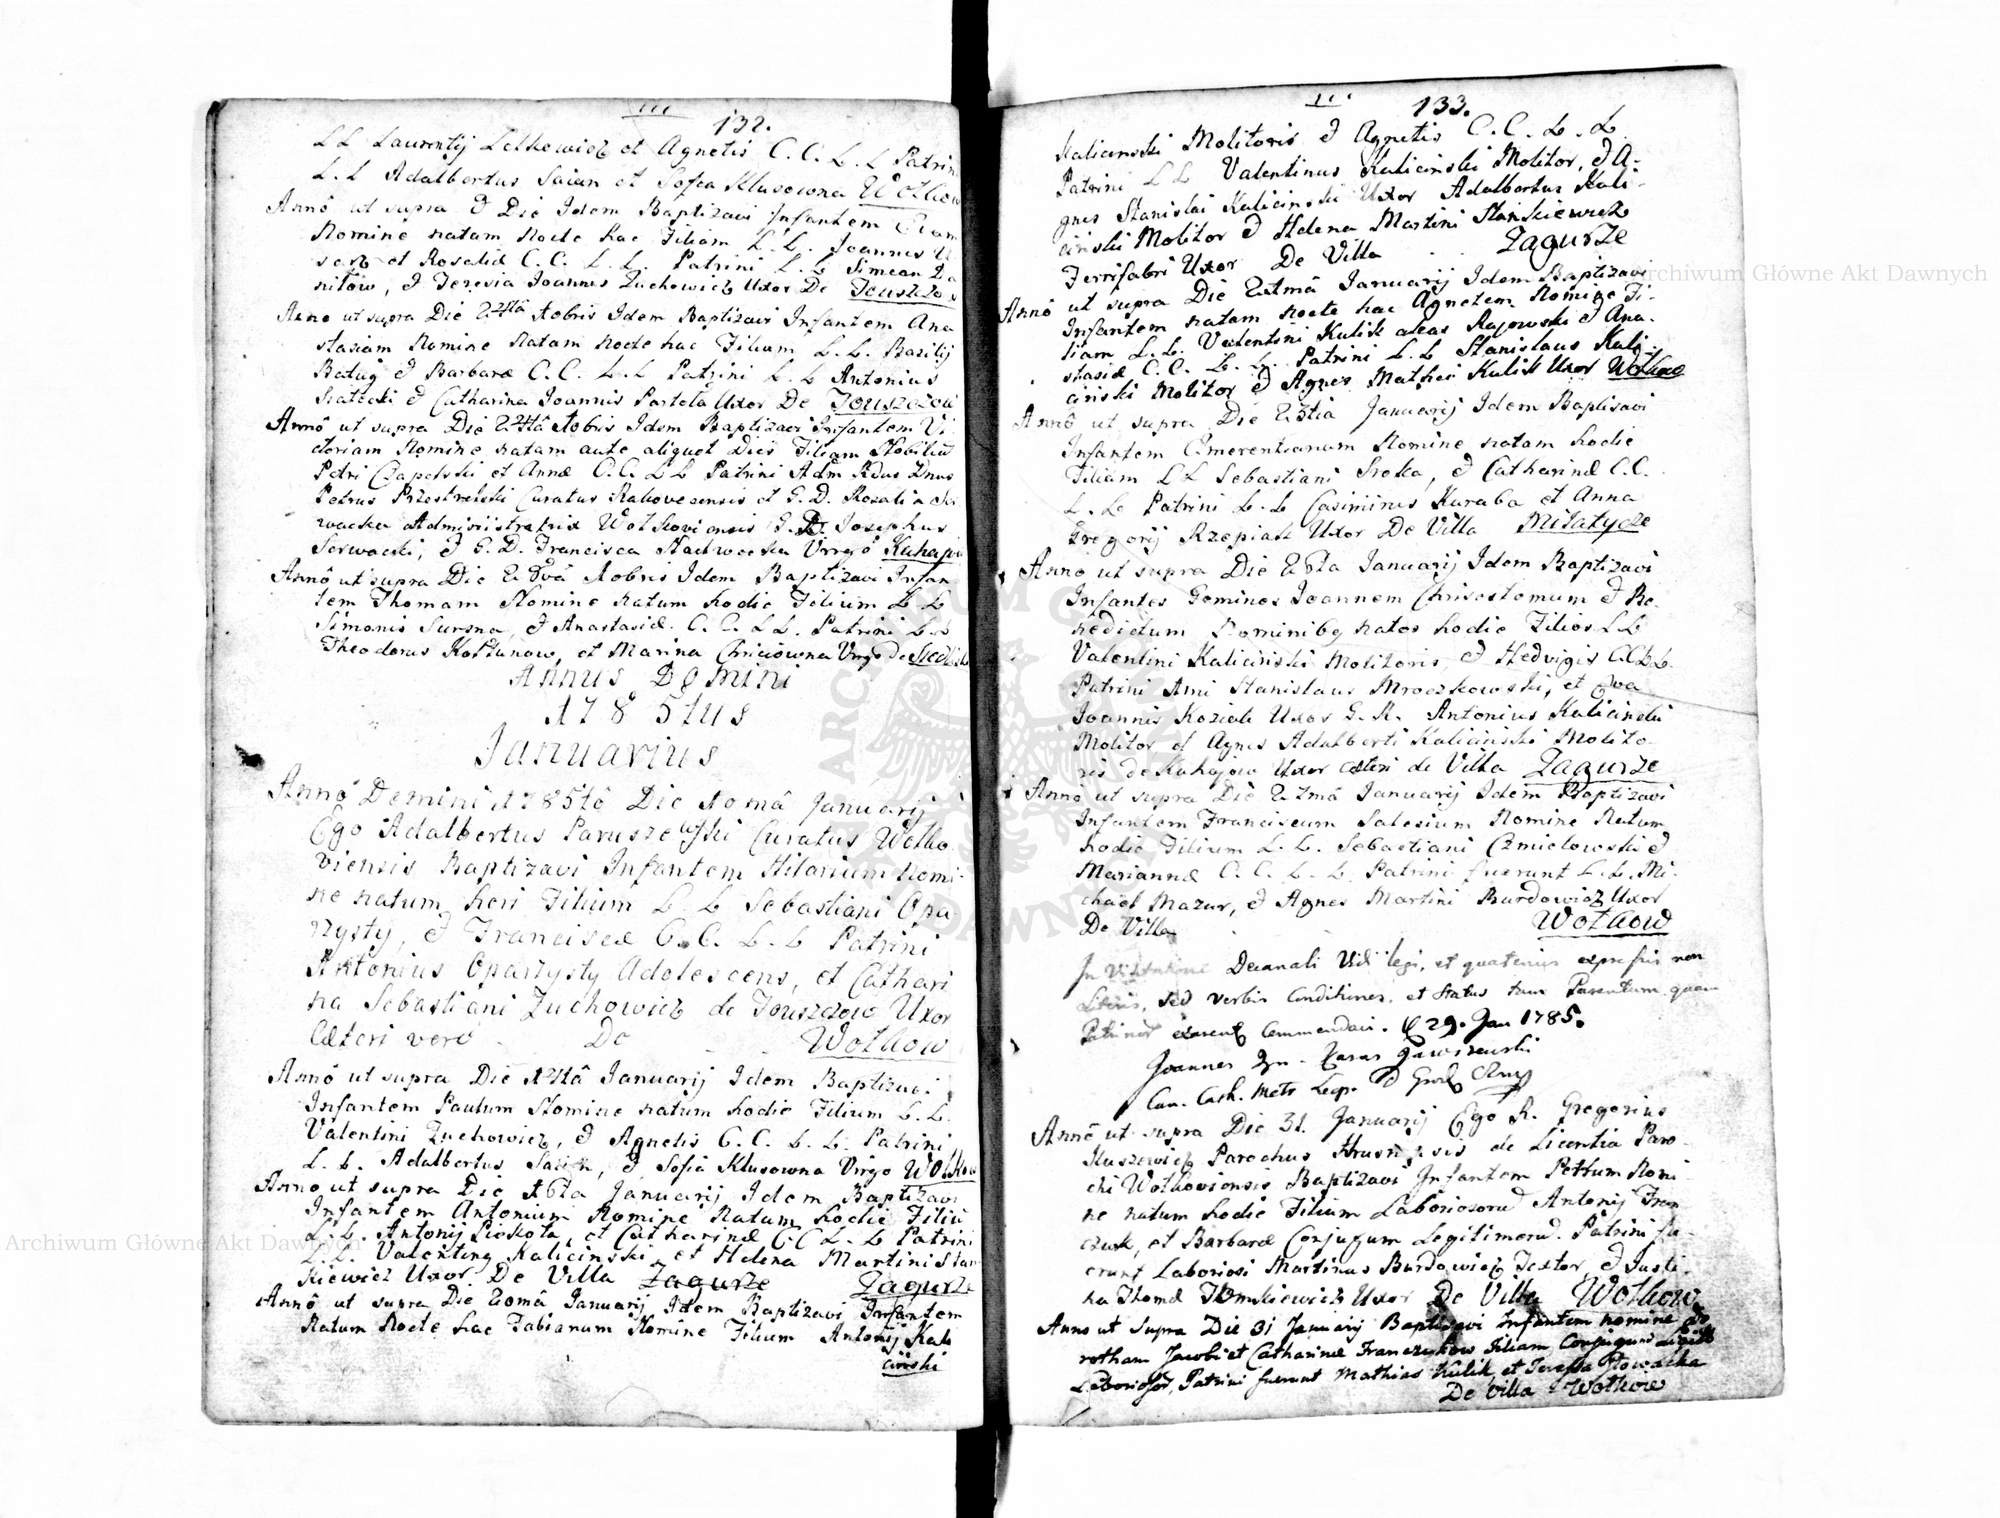 132.
LL Laurentij Letkowicz et Agnetis C.C. L.L Patrini
L.L Adalbertus Saian et Sofia Klusowna Wołkow
Annô ut supra & Die Idem Baptizavi Infantem
Nomine natam nocte hac Filiam L.L. Joannis
et Rosaliæ C.C. L.L. Patrini L.L Simeon
& Teresia Joannis Zuchowicz Uxor De Touszczow
Anno ut supra Die 24tâ Xbris Idem Baptizavi Infantem Ana
stasiam Nomine Natam nocte hac Filiam L.L. Bazilij
Batug & Barbaræ C.C. L.L Patrini L.L Antonius
& Catharina Joannis Parteta Uxor De Touszczow
Annô ut supra Die 24tâ Xbris Idem Baptizavi Infantem Vi
ctoriam Nomine natam ante aliquot Dies Filiam Nobiliū
Petri Czapelski et Annæ C.C. LL Patrini Adm Rdus Dnus
Petrus Przestrzelski Curatus Rakovecensis et G.D. Rosalia
Administratrix Wołkoviensis G.D. Josephus
Serwacki, & G.D. Francisca Nachwacka Virgo Kuhajow
Annô ut supra Die 28vâ Xbris Idem Baptizavi Infan
tem Thomam Nomine natum hodie Filium L.L
Simonis Surma, & Anastasiæ C.C. LL. Patrini LL
Theodorus Kołtunow, et Marina Virgo De Siedliska
Annus Domini
1785tus
Januarius
Annô Domini 1785tô Die 10mâ Januarij
Ego Adalbertus Paruszewski Curatus Wołko
viensis Baptizavi Infantem Hilarium Nomi-
ne natum heri Filium L.L Sebastiani Opa
rzysty, & Franciscæ C.C. L.L Patrini
Antonius Oparzysty Adolescens, et Cathari
na Sebastiani Zuchowicz de Touszczow Uxor
Cæteri vero De Wołkow
Annô ut supra Die 14tâ Januarij Idem Baptizavi
Infantem Paulum Nomine natum hodie Filium L.L.
Valentini Zuchowicz, & Agnetis C.C. L.L. Patrini
L.L. Adalbertus Saian, & Sofia Klusowna Virgo Wołkow
Anno ut supra Die 16ta Januarij Idem Baptizavi
Infantem Antonium Nomine Natum hodie Filiū
L.L. Antonij Piekota, et Catharinæ CC L.L Patrini
L.L. Valentinus Kaliciński et Helena Martini Stan
kiewicz Uxor De Villa Zagurze Zagurze
Annô ut supra Die 20mâ Januarij Idem Baptizavi Infantem
Natum Nocte hac Fabianum Nomine Filium Antonij Kali
ciński
133.
Kaliciński Molitoris & Agnetis C.C. L.L.
Patrini LL Valentinus Kaliciński Molitor, & A-
gnes Stanislai Kaliciński Uxor Adalbertus Kali-
ciński Molitor & Helena Martini Stańkiewicz
Ferrifabri Uxor De Villa Zagurze
Annô ut supra Die 22tmâ Januarij Idem Baptizavi
Infantem natam nocte hac Agnetem Nomine Fi-
liam L.L. Valentini Kulik aleas Rajowski & Ana-
stasiæ C.C. L.L. Patrini L.L Stanislaus Kali-
ciński Molitor & Agnes Mathei Kulik Uxor Wołkow
Annô ut supra Die 23tia Januarij Idem Baptisavi
Infantem Emerentianam Nomine natam hodie
Filiam LL Sebastiani Sroka, & Catharinæ C.C.
L.L Patrini L.L Casimirus Kuraba et Anna
Gregorij Rzepiak Uxor De Villa Miłatycze
Anno ut supra Die 26ta Januarij Idem Baptizavi
Infantes Geminos Joannem Chrisostomum & Be-
nedictum Nominibꝫ natos hodie Filios LL
Valentini Kaliciński Molitoris, & Hedvigis C.C.LL.
Patrini Ami Stanislaus Mroczkowski, et Eva
Joannis Koziak Uxor G.R. Antonius Kaliciński
Molitor et Agnes Adalberti Kaliciński Molito-
ris de Kuhajow Uxor cæteri de Villa Zagurze
Annô ut supra Die 27mâ Januarij Idem Baptizavi
Infantem Franciscum Salesium Nomine Natum
hodie Filium L.L. Sebastiani Czmielowski &
Mariannæ C.C. L.L. Patrini fuerunt L.L. Mi-
chael Mazur, & Agnes Martini Burdowicz Uxor
De Villa Wołkow
In Visitatione Decanali Vidi legi, et quatenus expressis non
Literis, sed verbis Conditiones, et Status tam Parentum quam
Patrinor exarent Commendavi. 29. Jan 1785.
Joannes
Can. Cath. Metr Leop.
Annô ut supra Die 31. Januarij Ego R. Gregorius
Parochus de Licentia Paro-
chi Wołkoviensis Baptizavi Infantem Petrum Nomi-
ne natum hodie Filium Laboriosorū Antonij Fran
czuk, et Barbaræ Conjugum Legitimorū. Patrini fu-
erunt Laboriosi Martinus Burdowicz Textor, & Justi-
na Thomæ Tomkiewicz Uxor De Villa Wołkow
Anno ut Supra Die 31 Januarij Baptisavi Infantem nomine Do
rotham Jacobi et Catharinæ Franczukow Filiam Conjugum Legitt
Laboriosor, Patrini fuerunt Mathias Kulik, et Teressa Nowacka
De villa Wołkow
Archiwum Główne Akt Dawnych
Archiwum Główne Akt Dawnych
ARCHIWUM GŁÓWNE AKT DAWNYCH